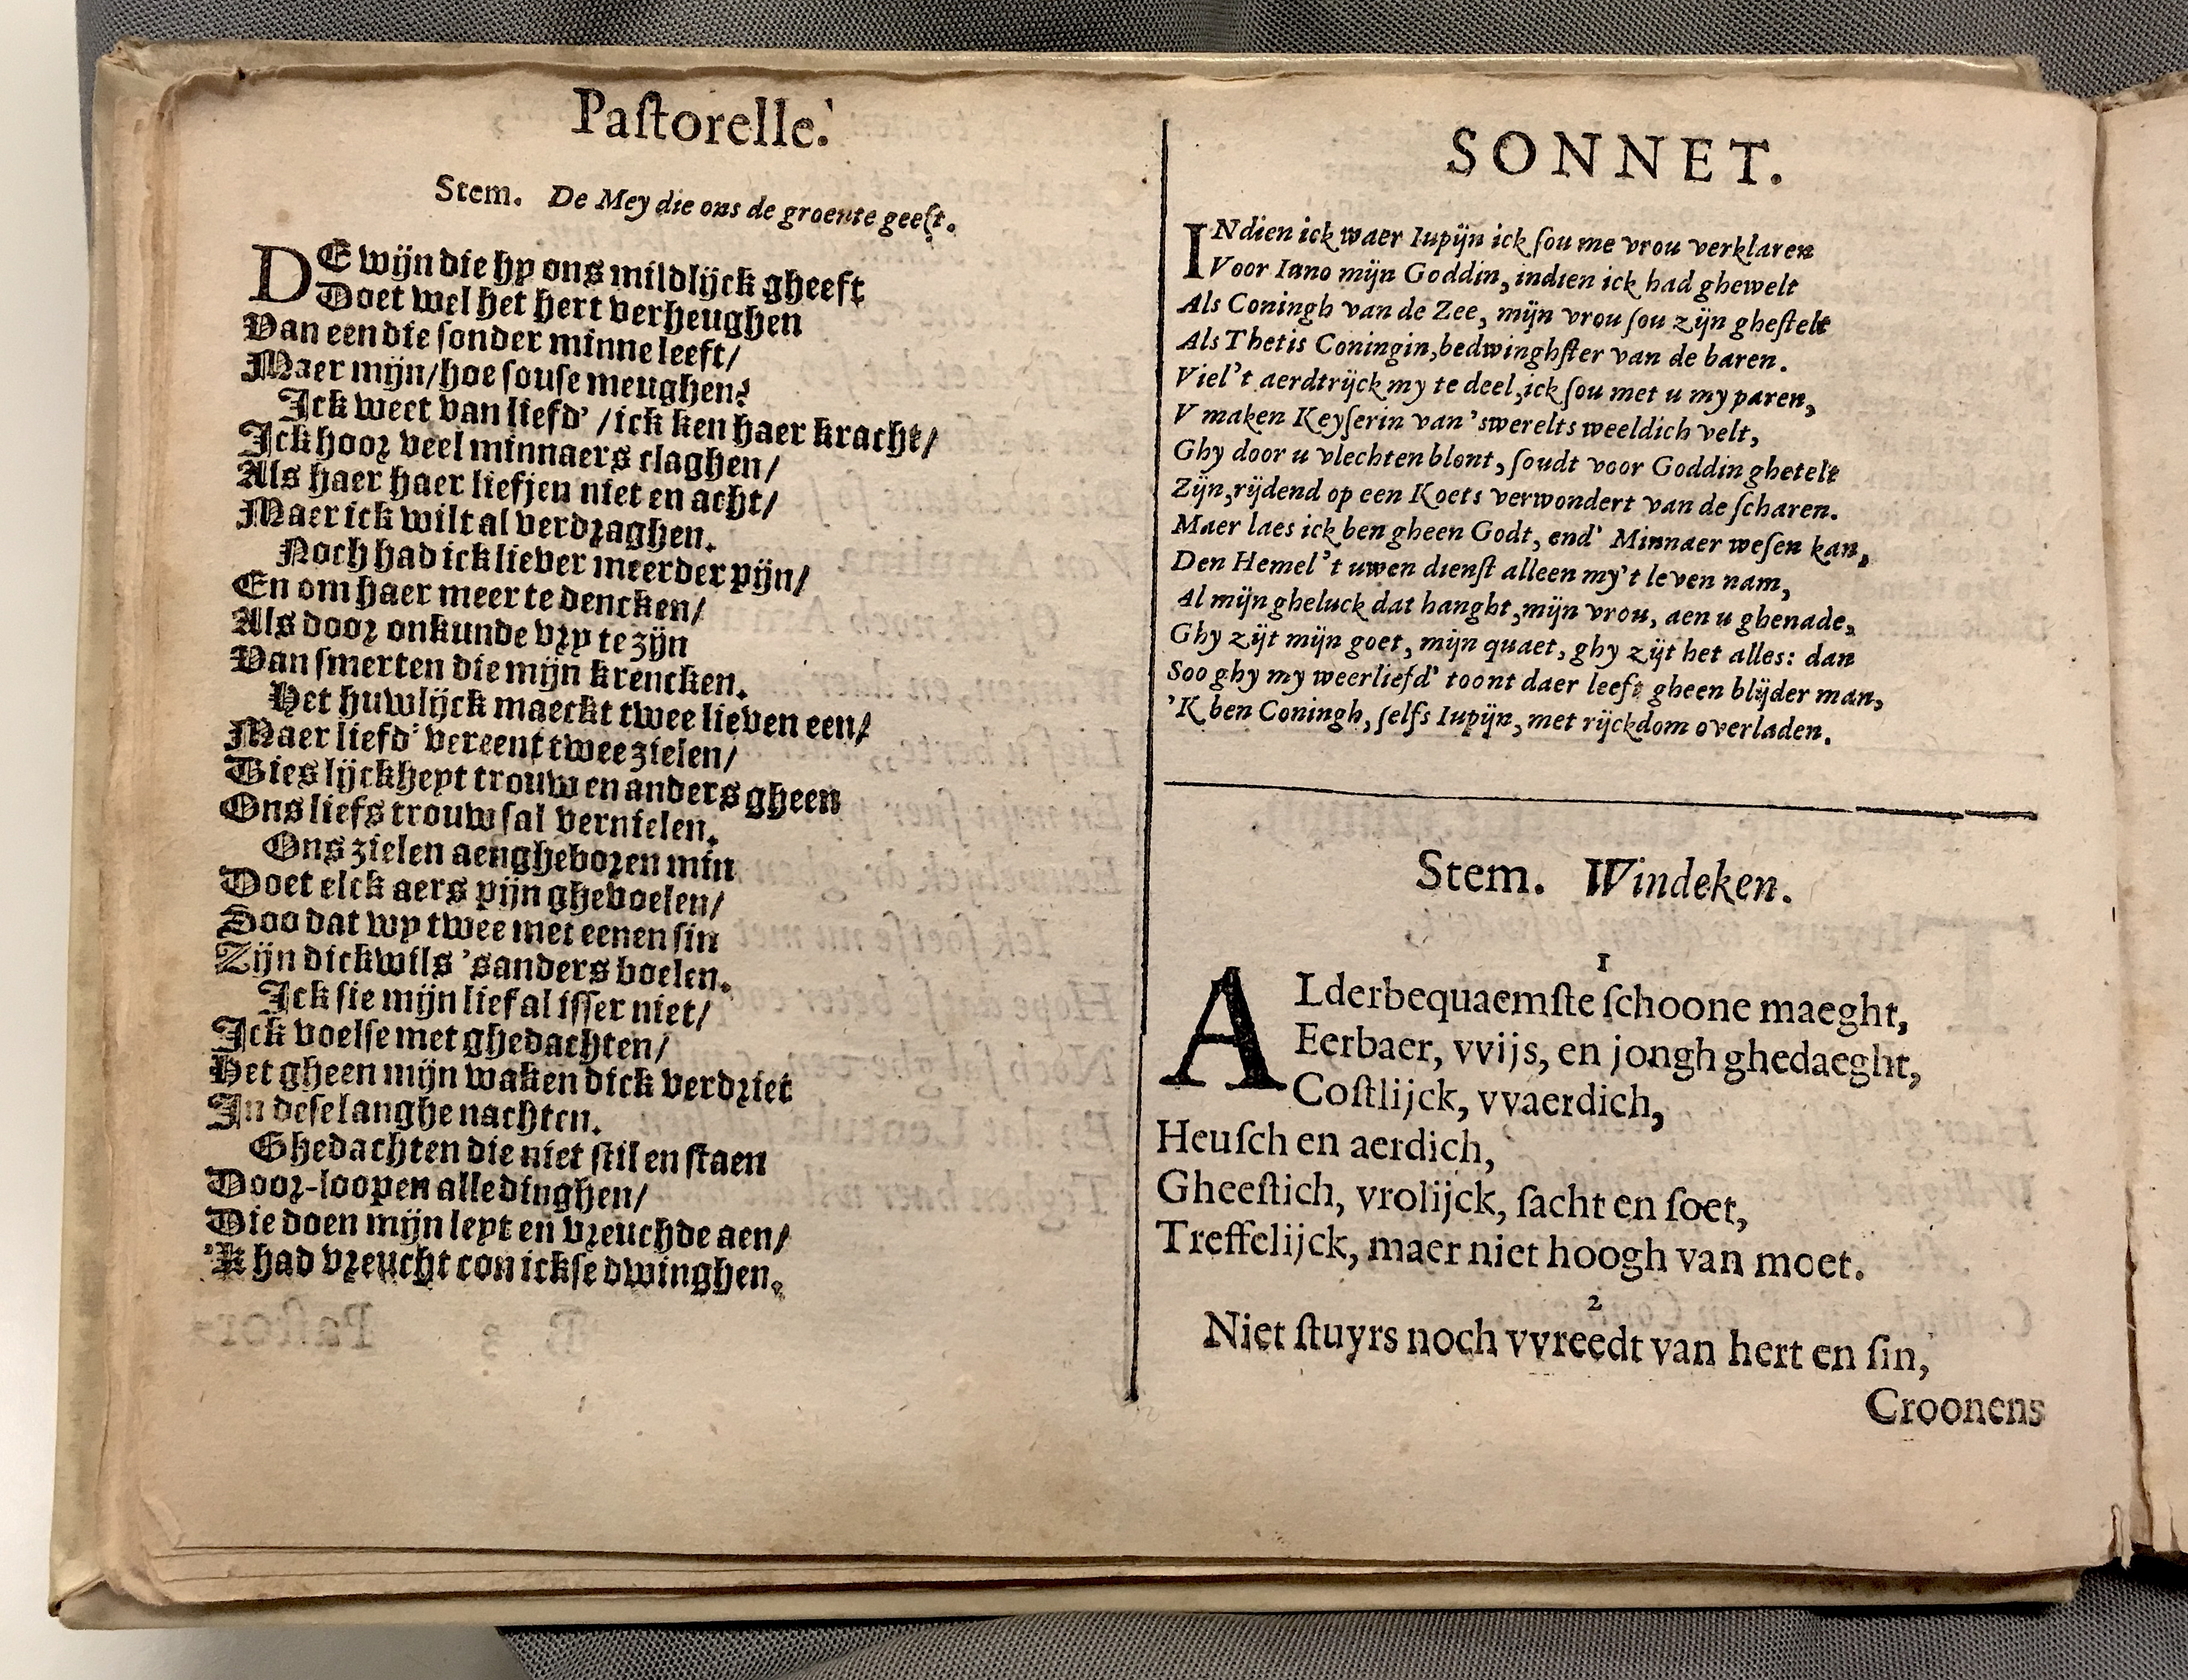 Paſtorelle.
Stem. De Mey die ons de groente geeft.
DE wijn die hy ons mildlijck gheeft
Doet wel het hert verheughen
Van een die ſonder minne leeft/
Maer mijn/hoe ſouſe meughen?
Ick weet van liefd' /ick ken haer kracht/
Ick hoor veel minnaers claghen/
Als haer haer liefjen niet en acht/
Maer ick wilt al verdraghen.
Noch had ick liever meerder pijn/
En om haer meer te dencken/
Als door onkunde vry te zijn
Van ſmerten die mijn krencken.
Het huwlijck maeckt twee lieven een/
Maer liefd' vereent twee zielen/
Dies lijckheyt trouw en anders gheen
Ons liefs trouw ſal vernielen.
Ons zielen aengheboren min
Doet elck aers pijn ghevoelen/
Soo dat wy twee met eenen ſin
Zijn dickwils 'sanders boelen.
Ick ſie mijn lief al iſſer niet/
Ick voelſe met ghedachten/
Het gheen mijn waken dick verdriet
In deſe langhe nachten.
Ghedachten die niet ſtil en ſtaen
Door-loopen alle dinghen/
Die doen mijn leyt en vreuchde aen/
'K had vreucht con ickſe dwinghen.
SONNET.
INdien ick waer Iupijn ick ſou me vrou verklaren
Voor Iuno mijn Goddin, indien ick had ghewelt
Als Coningh van de Zee, mijn vrou ſou zijn gheſtelt
Als Thetis Coningin, bedwinghſter van de baren.
Viel't aerdtrijck my te deel, ick ſou met u my paren,
V maken Keyſerin van 'swerelts weeldich velt,
Ghy door u vlechten blont, ſoudt voor Goddin ghetelt
Zijn, rijdend op een Koets verwondert van de ſcharen.
Maer laes ick ben gheen Godt, end' Minnaer weſen kan,
Den Hemel 't uwen dienſt alleen my't leven nam,
Al mijn gheluck dat hanght, mijn vrou, aen u ghenade,
Ghy zijt mijn goet, mijn quaet, ghy zijt het alles: dan
Soo ghy my weerliefd' toont daer leeft gheen blijder man,
'K ben Coningh, ſelfs Iupijn, met rijckdom overladen.
Stem. Windeken.
1
ALderbequaemſte ſchoone maeght,
Eerbaer, vvijs, en jongh ghedaeght,
Coſtlijck, vvaerdich,
Heuſch en aerdich,
Gheeſtich, vrolijck, ſacht en ſoet,
Treffelijck, maer niet hoogh van moet.
2
Niet ſtuyrs noch vvreedt van hert en ſin,
Croonens